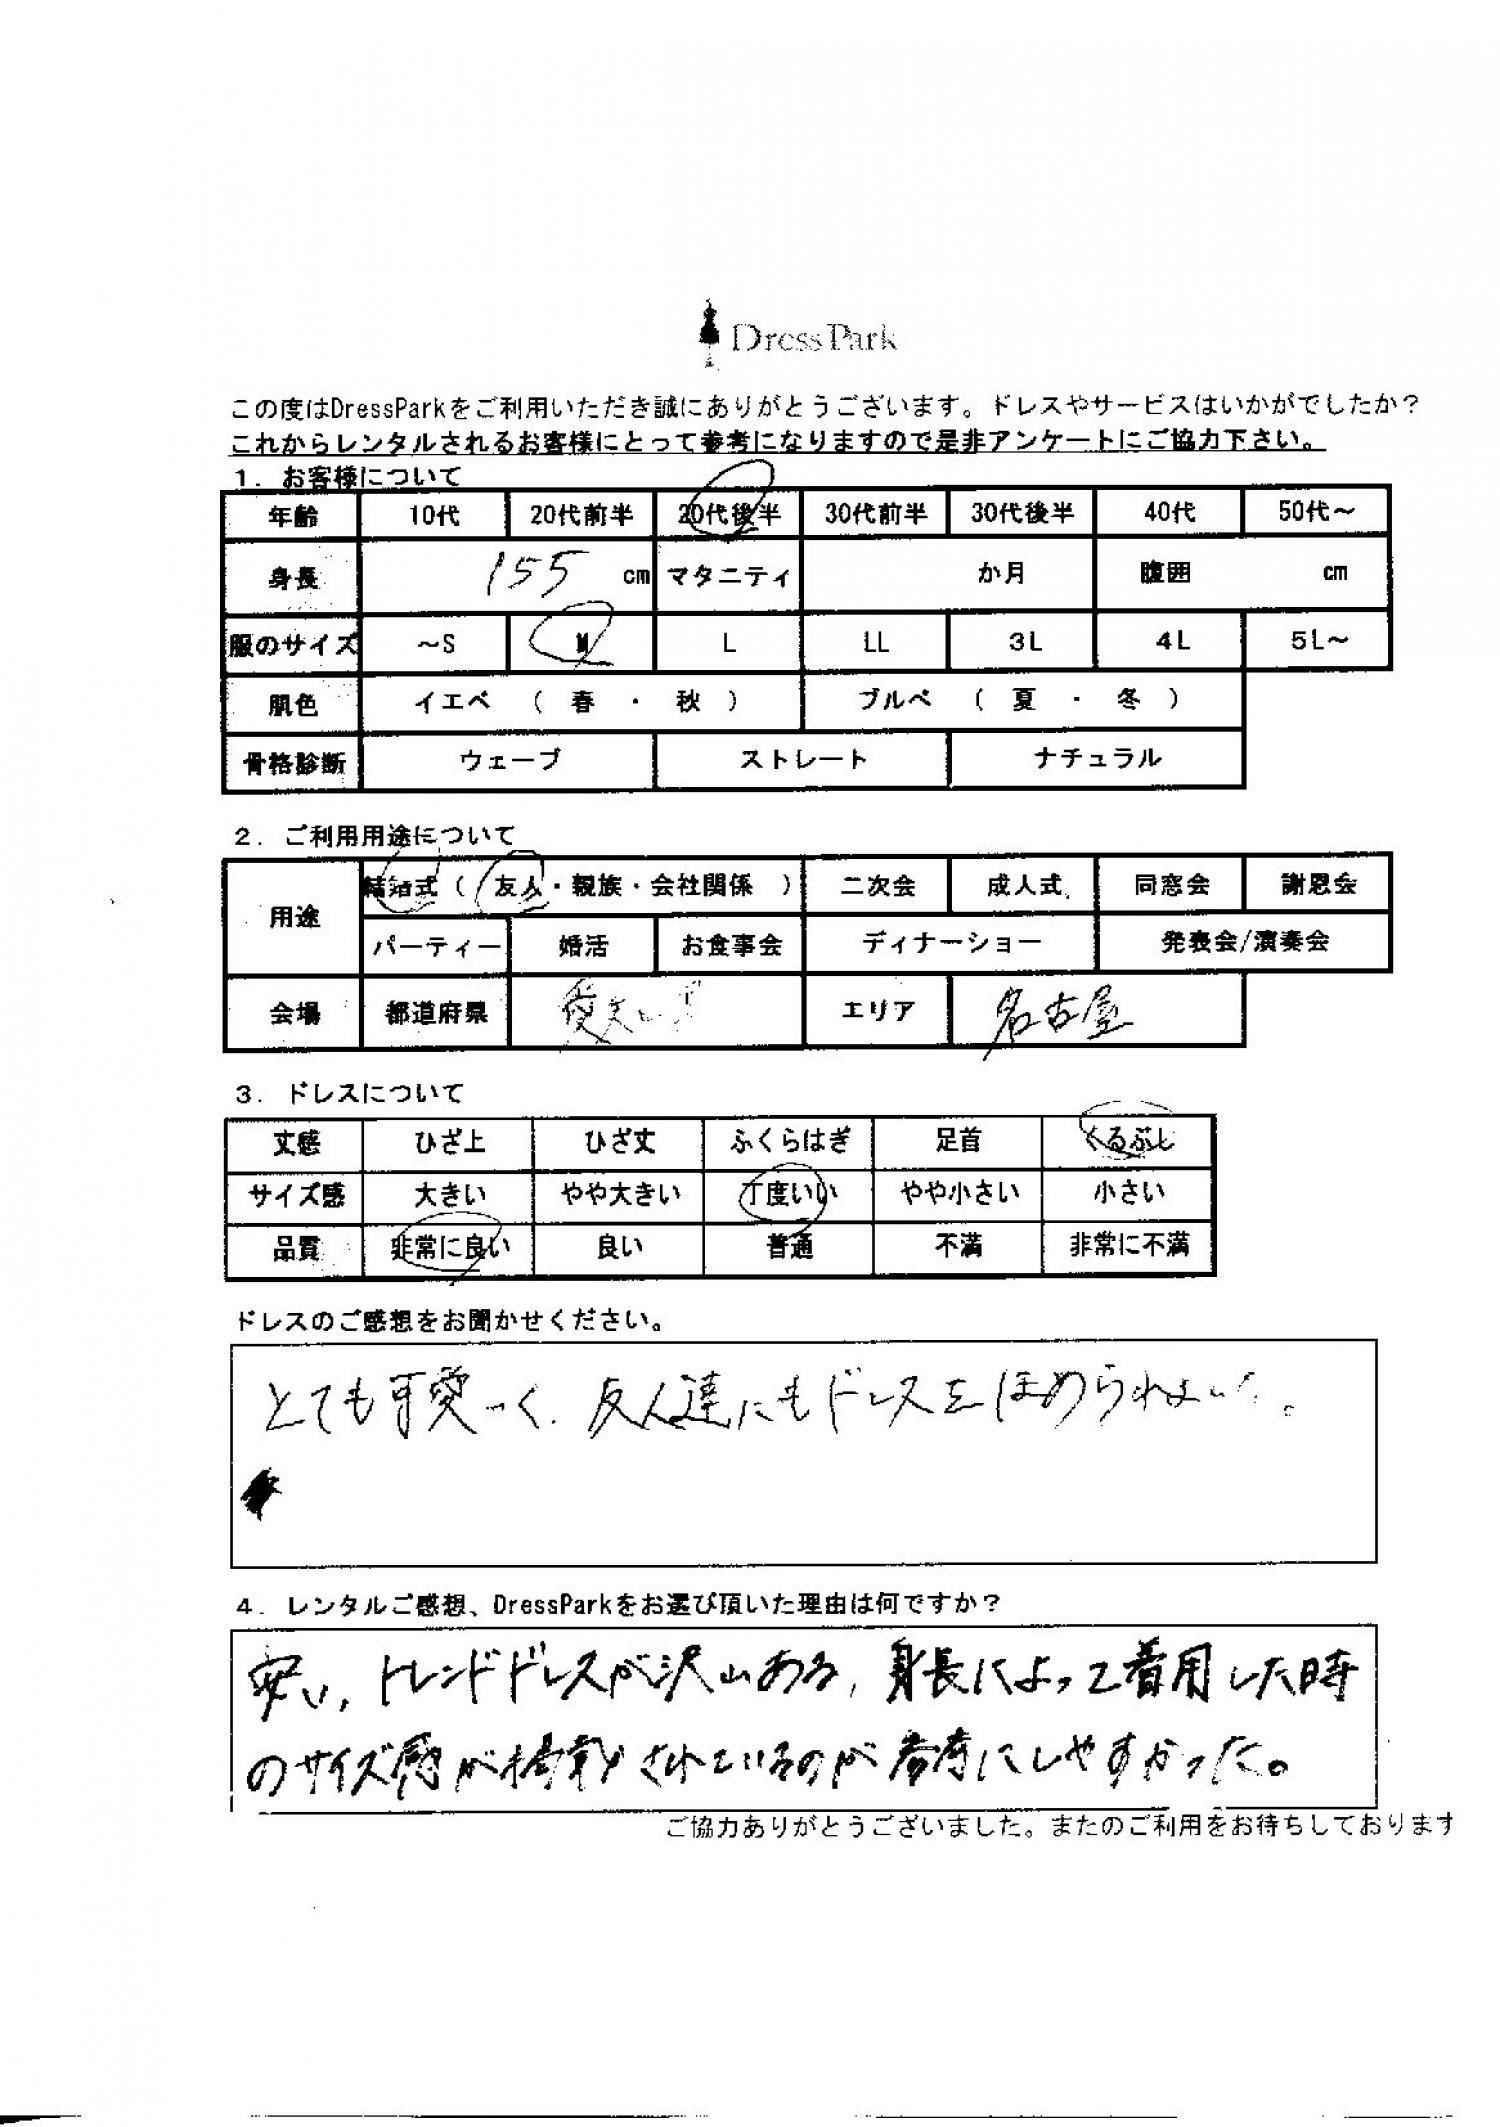 DressPark
この度はDressParkをご利用いただき誠にありがとうございます。ドレスやサービスはいかがでしたか？
これからレンタルされるお客様にとって参考になりますので是非アンケートにご協力下さい。
1. お客様について
年齢 10代 20代前半 20代後半 30代前半 30代後半 40代 50代～
身長 155 cm マタニティ か月 腹囲 cm
服のサイズ ～S M L LL 3L 4L 5L～
肌色 イエベ （ 春 ・ 秋 ） ブルベ （ 夏 ・ 冬 ）
骨格診断 ウェーブ ストレート ナチュラル
2. ご利用用途について
用途 結婚式（ 友人・親族・会社関係 ） 二次会 成人式 同窓会 謝恩会
パーティー 婚活 お食事会 ディナーショー 発表会/演奏会
会場 都道府県 エリア 名古屋
3. ドレスについて
丈感 ひざ上 ひざ丈 ふくらはぎ 足首 くるぶし
サイズ感 大きい やや大きい 丁度いい やや小さい 小さい
品質 非常に良い 良い 普通 不満 非常に不満
ドレスのご感想をお聞かせください。
とても可愛く、友人達にもドレスをほめられました。
4. レンタルご感想、DressParkをお選び頂いた理由は何ですか？
安い、トレンドドレスが沢山ある、身長によって着用した時
のサイズ感が搭載されているのが参考にしやすかった。
ご協力ありがとうございました。またのご利用をお待ちしております